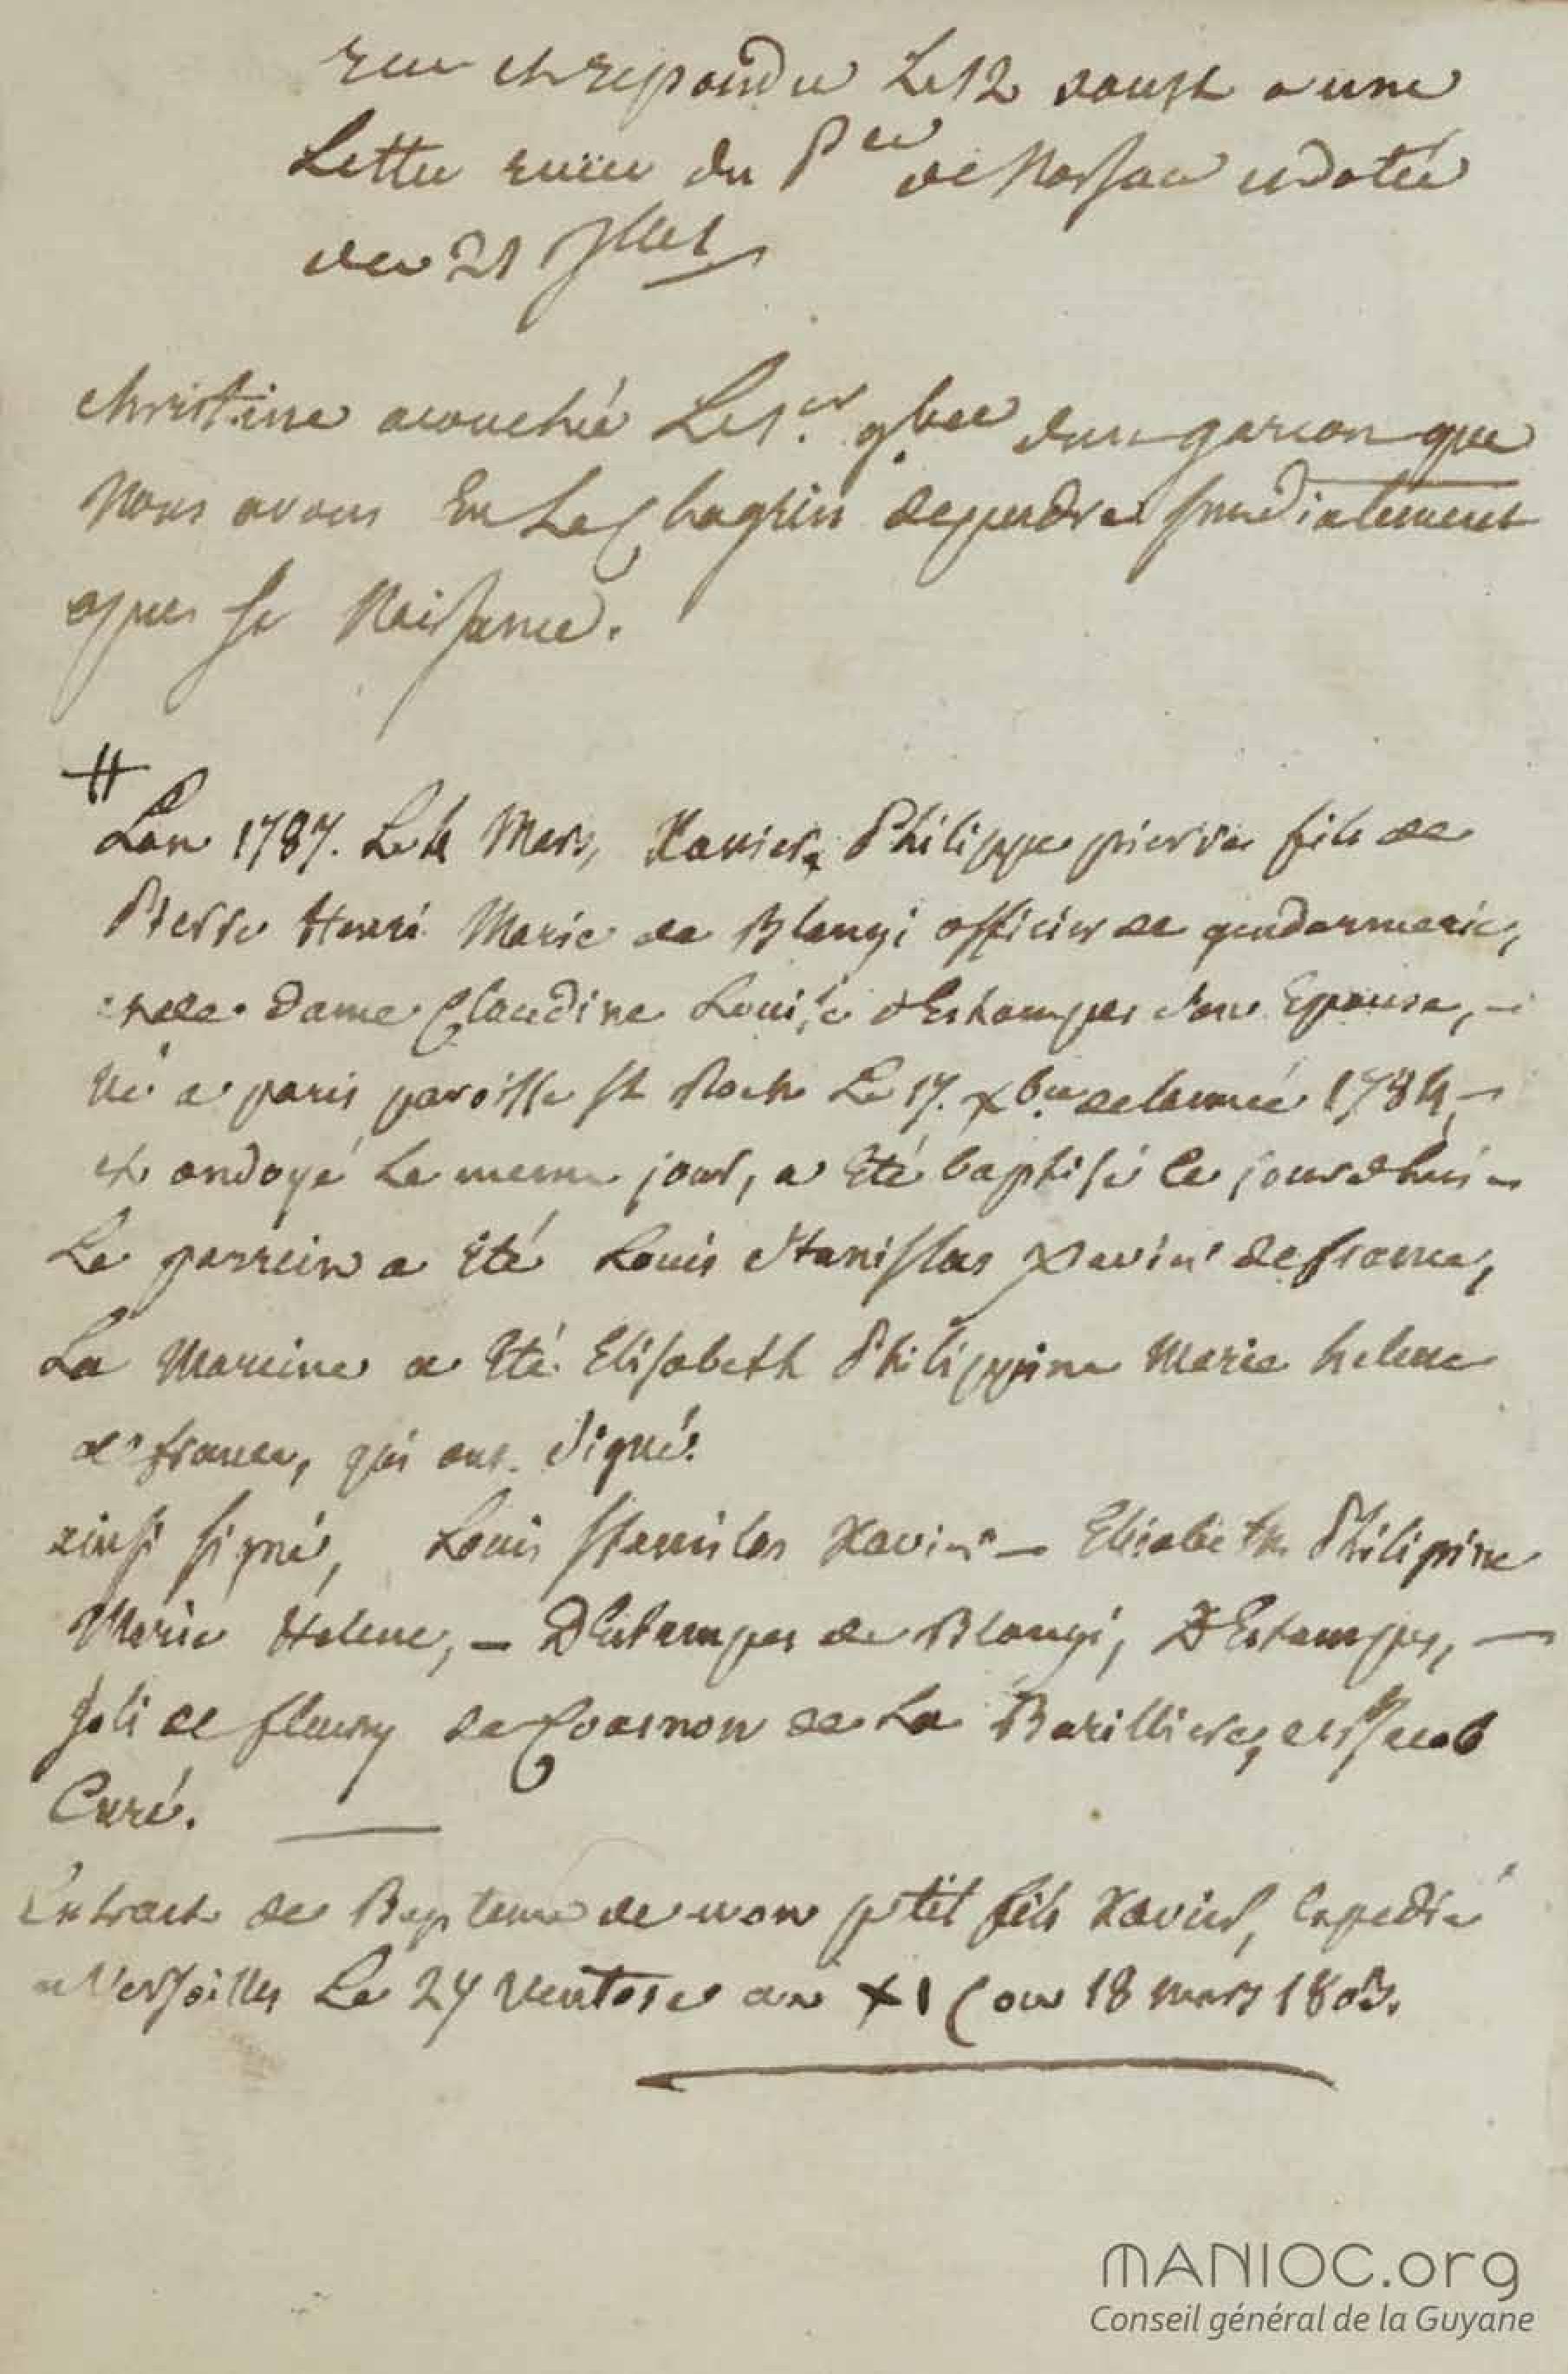 repondu Le 12 aoust a une
Lettre du de Nassau datée
du 21 Jllet
christine acouchée Le 1.er 9bre dun garcon que
Nous avons Eu Le Chagrin de perdre
apres sa Naissance.
Lan 1787. Le 4 Mars, Xavier, Philippe pierre fils de
Pierre Henri Marie de Blangi officier de gendarmerie,
et de dame Claudine Louise d'Estampes son Epouse,
Né a paris paroisse st Roch Le 17. xbre de lannée 1784,
et ondoyé Le meme jour, a Eté baptisé Ce jourdhui
Le parrein a Eté Louis Stanislas Xavier de france,
La Mareine a Eté Elisabeth Philippine Marie helene
de france, qui ont signé.
ainsi signé, Louis Stanislas Xavier — Elisabeth Philipine
Marie Helene, — D'Estampes de Blangi, D'Estampes, —
Joli de fleury de Coasnon de La Barilliere, et Jacob
Curé.
Extrait de Bapteme de mon ptit fils Xavier, Expedié
a Versailles Le 27 Ventose an XI (ou 18 mars 1803.
MANIOC.org
Conseil général de la Guyane